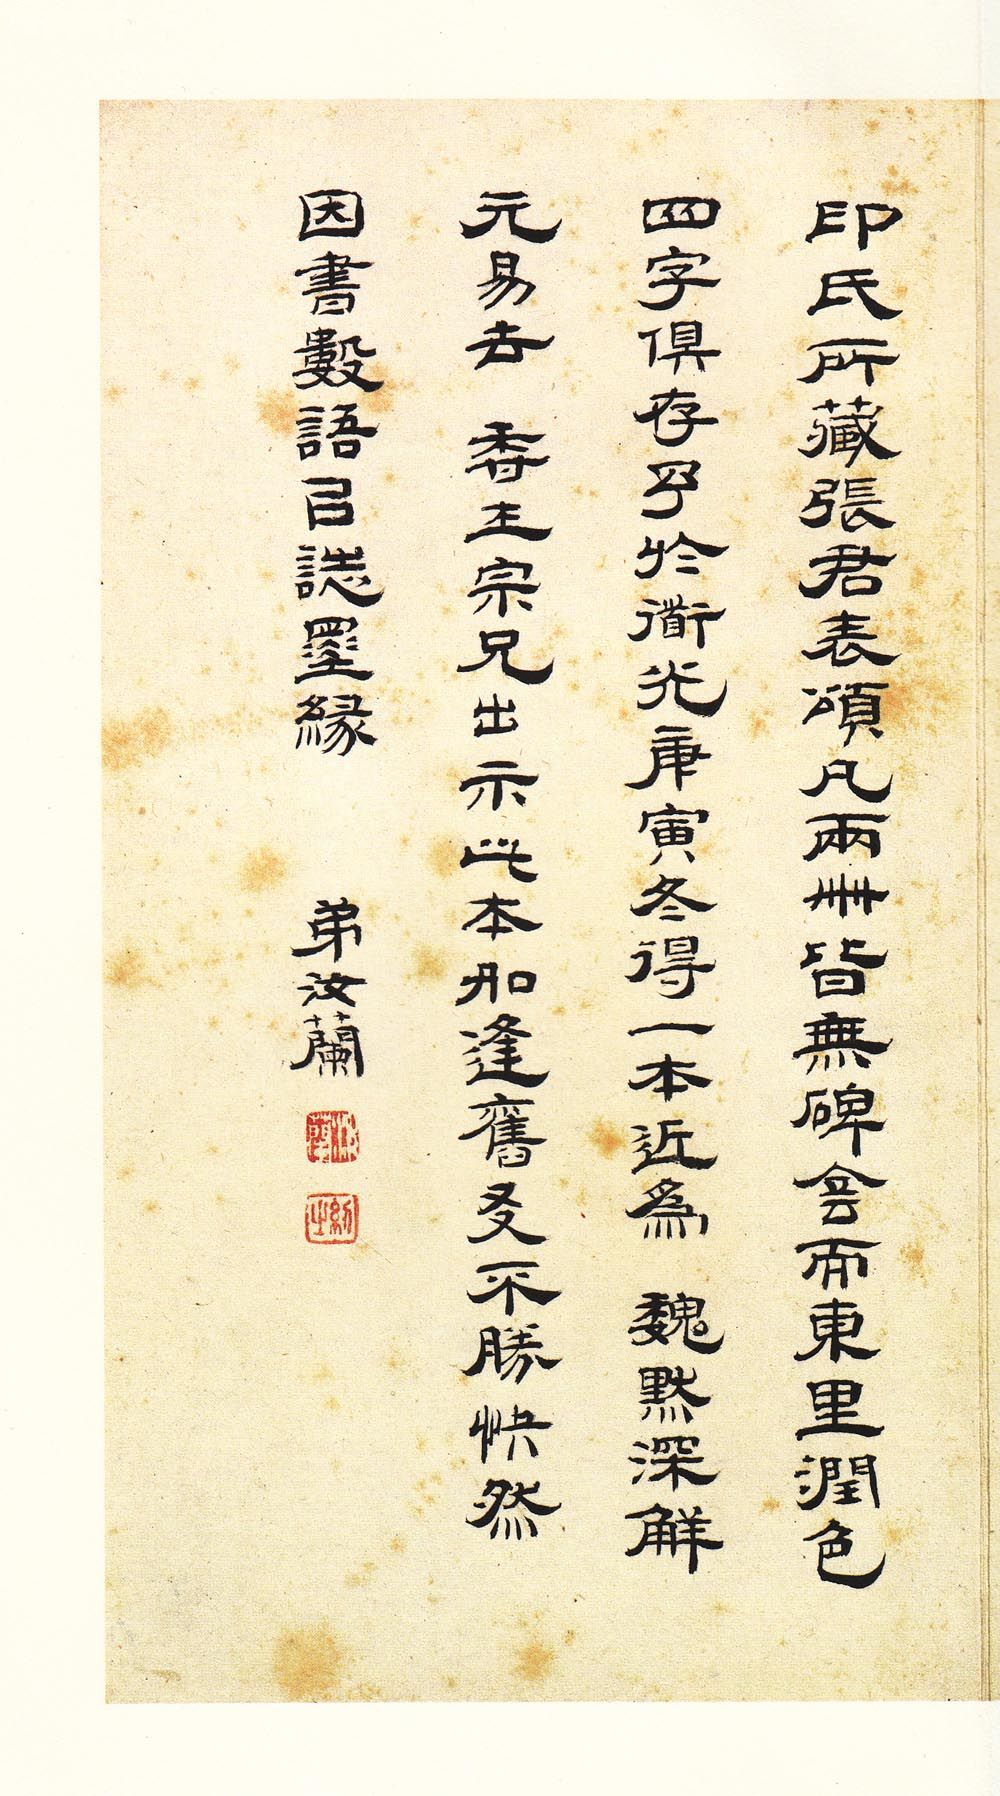 印氏所藏張君表頌凡兩冊皆無碑侌而東里潤色
四字俱存予於衜光庚寅冬得一本近爲 魏默深解
元易去 香宗兄出示此本如逢舊友不勝快然
因書數語㠯誌墨緣 弟汝蘭
汝蘭
紉之